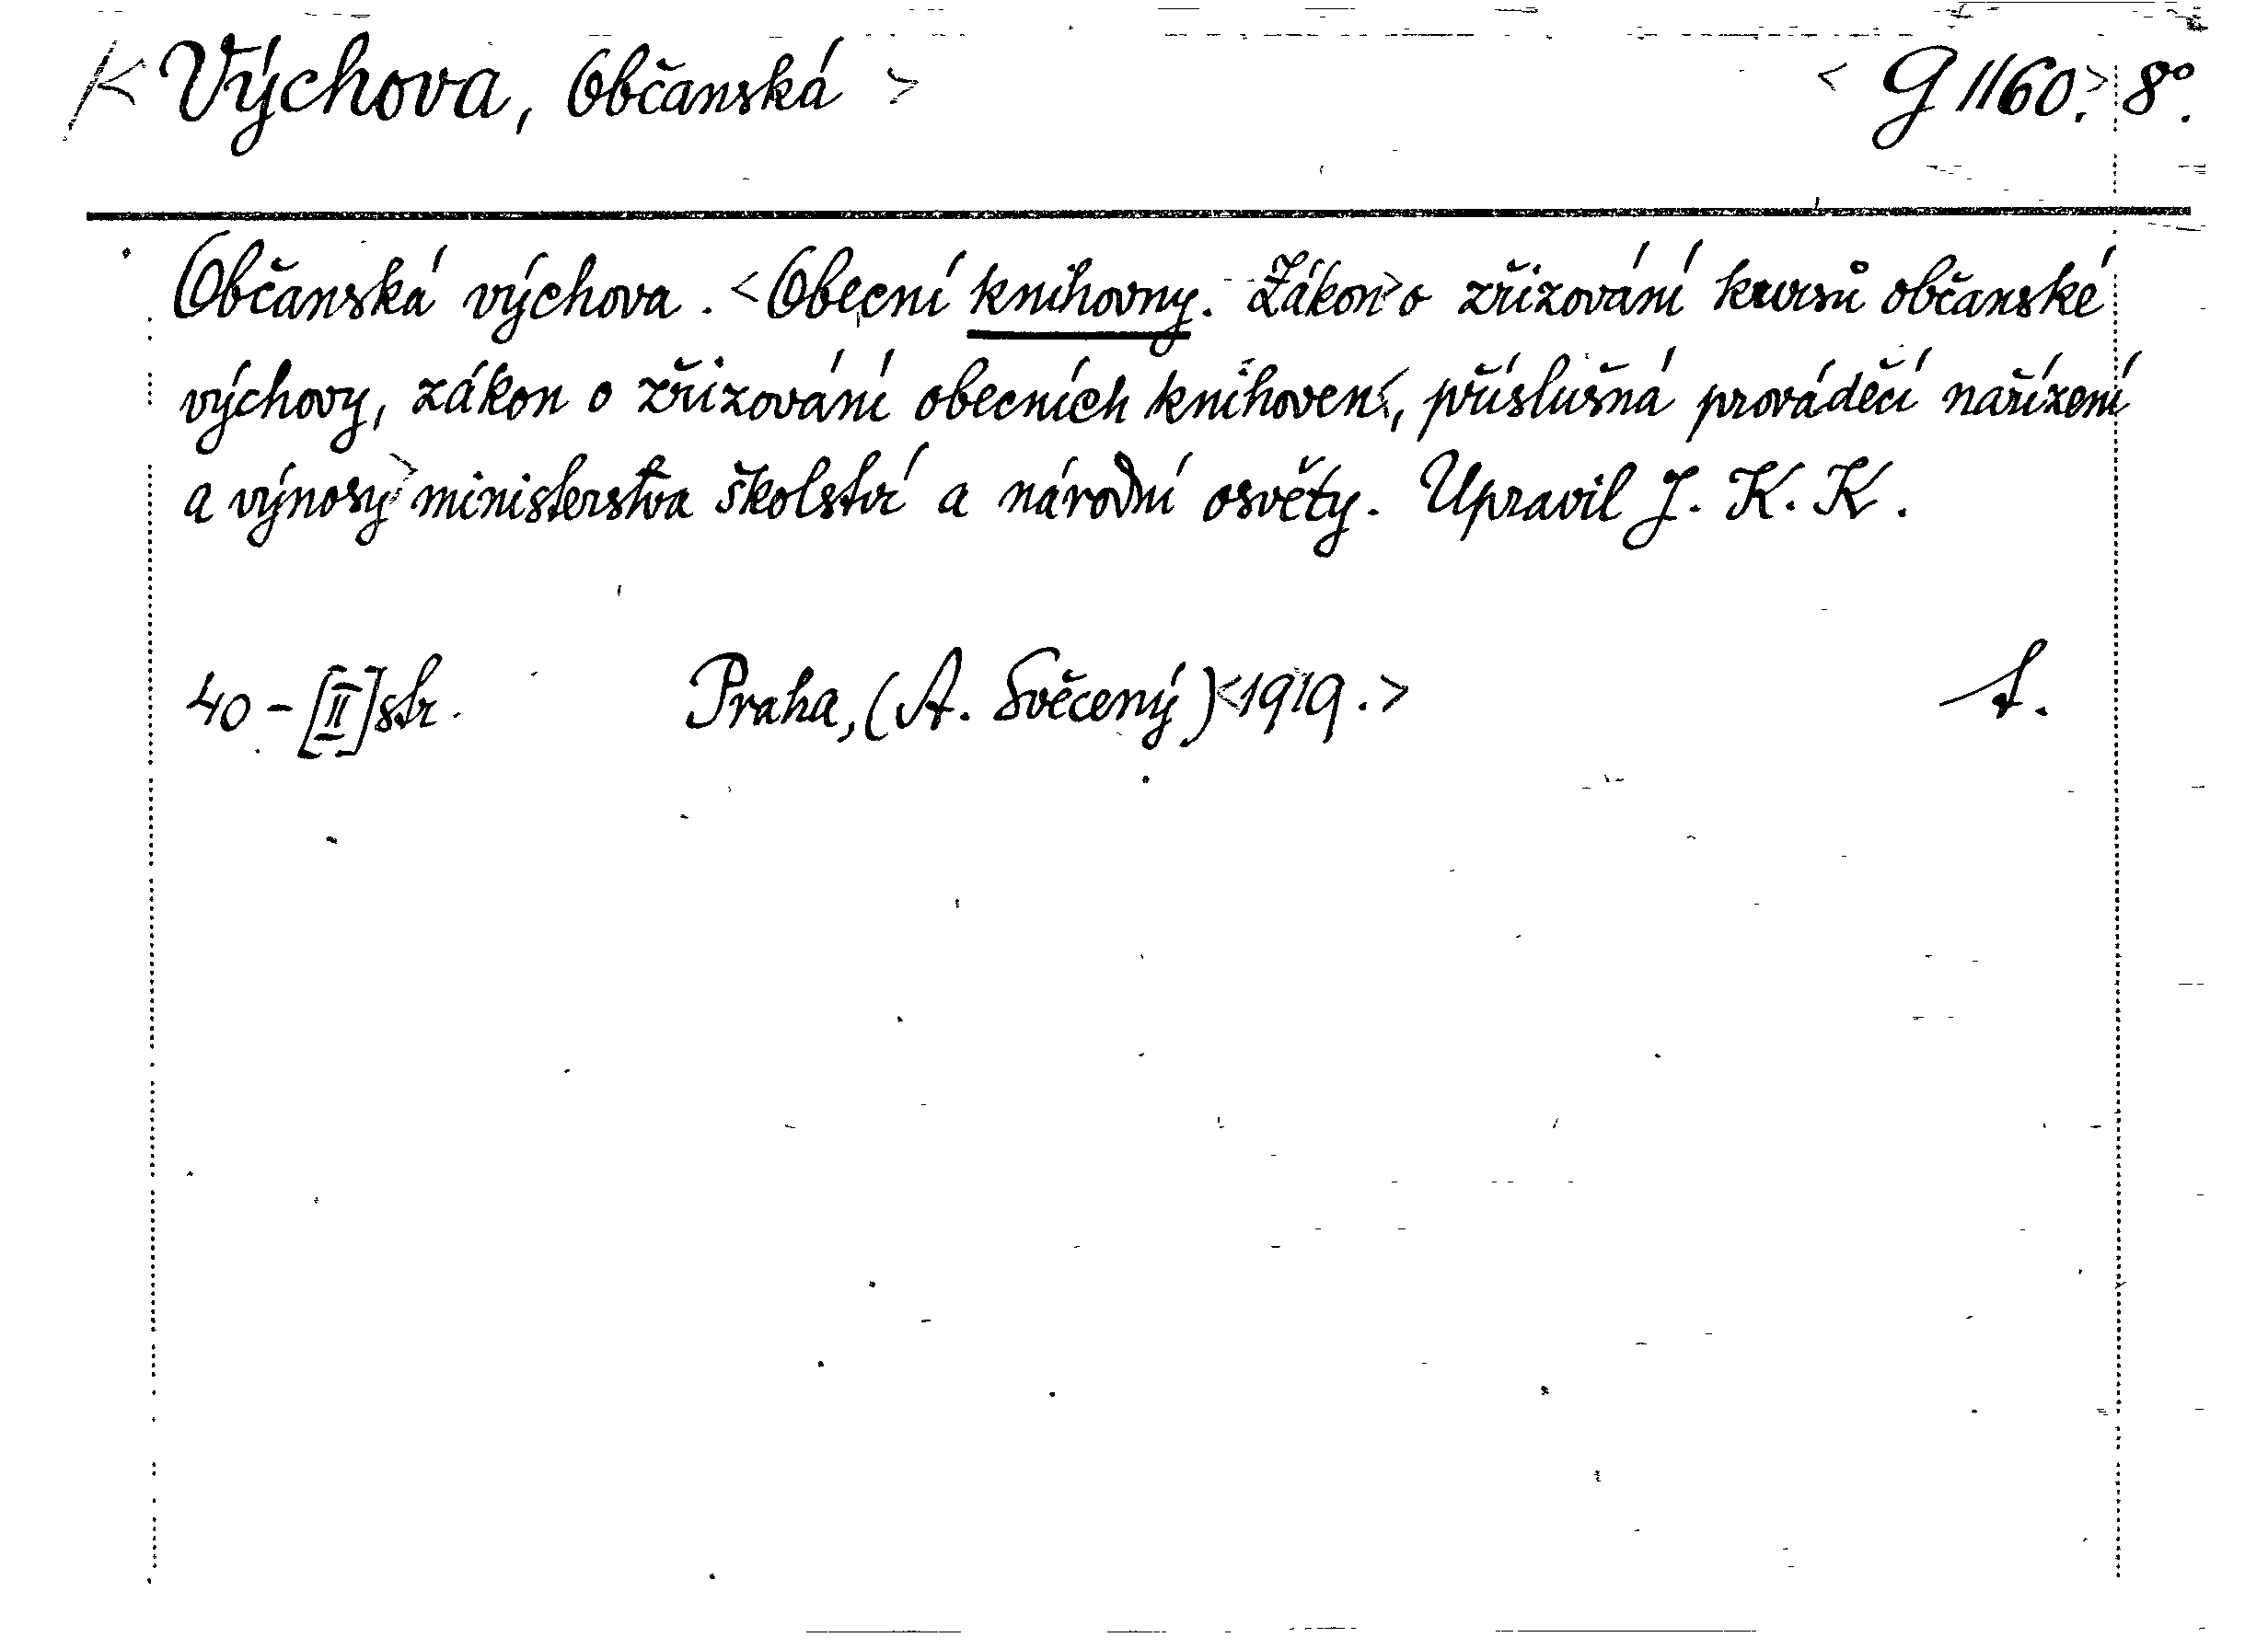 < Výchova, Občanská > < G 1160.> 8°.
Občanská výchova. <Obecní knihovny. Zákon> o zřizování kursů občanské
výchovy, zákon o zřizování obecních knihoven<, příslušná prováděcí nařízení
a výnosy> ministerstva školství a národní osvěty. Upravil J. K. K.
40-[II]str. Praha, (A. Svěcený) <1919.>